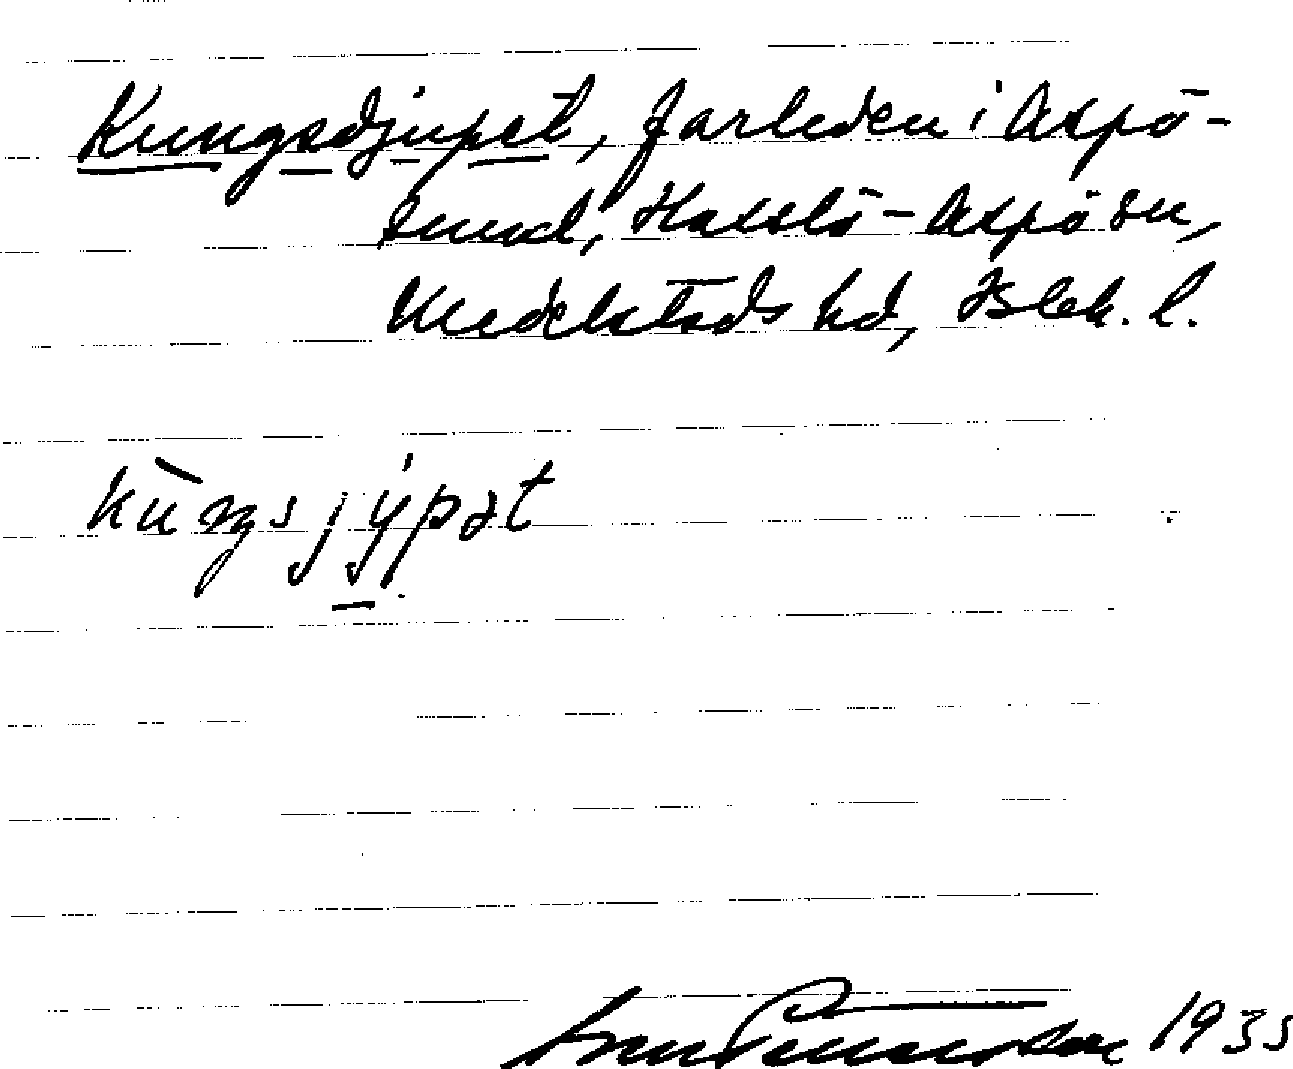 Kungsdjupet, farleden i Aspö-
sund, Hasslö-Aspö sn,
Medelstads hd, Blek. l.
kùŋsjýpət
1935